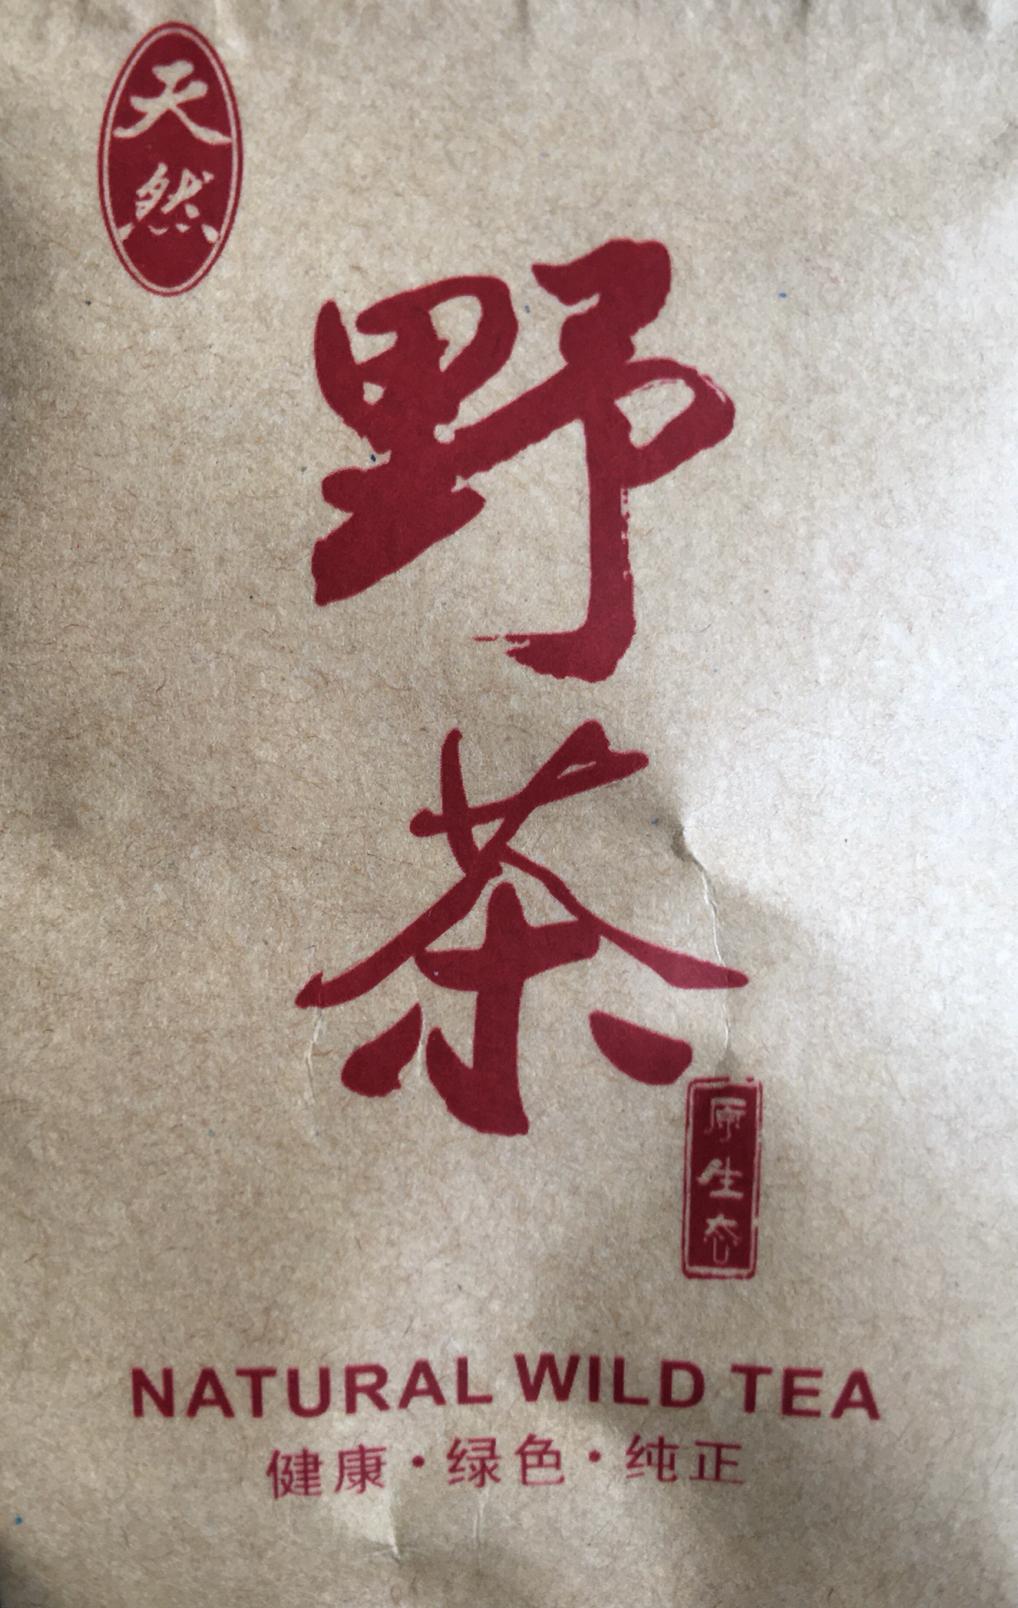 天然
野茶
原生态
NATURAL WILD TEA
健康·绿色·纯正